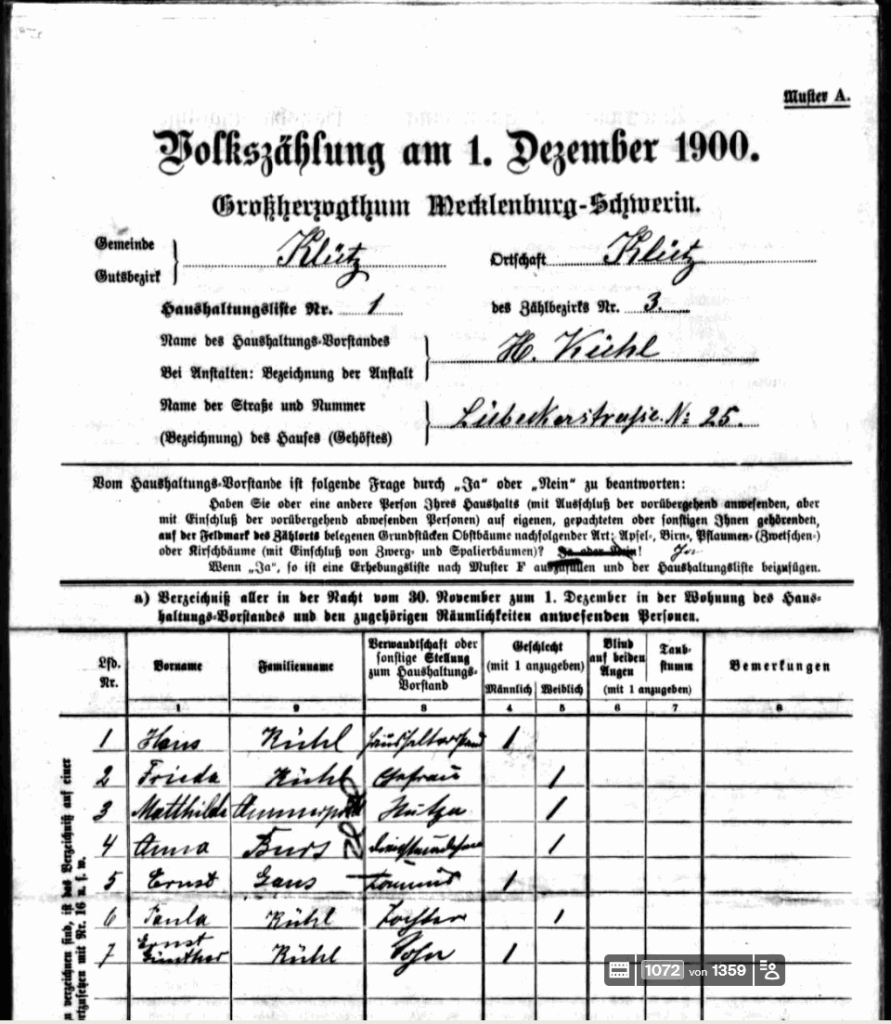 Muster A.
Volkszählung am 1. Dezember 1900.
Großherzogthum Mecklenburg-Schwerin.
Gemeinde
Gutsbezirk
Klütz
Ortschaft Klütz
Haushaltungsliste Nr. 1 des Zählbezirks Nr. 3.
Name des Haushaltungs-Vorstandes
Bei Anstalten: Bezeichnung der Anstalt
H. Kühl
Name der Straße und Nummer
(Bezeichnung) des Hauses (Gehöftes)
Lübeckerstraße. No: 25.
Vom Haushaltungs-Vorstande ist folgende Frage durch „Ja“ oder „Nein“ zu beantworten:
Haben Sie oder eine andere Person Ihres Haushalts (mit Ausschluß der vorübergehend anwesenden, aber
mit Einschluß der vorübergehend abwesenden Personen) auf eigenen, gepachteten oder sonstigen Ihnen gehörenden,
auf der Feldmark des Zählorts belegenen Grundstücken Obstbäume nachfolgender Art: Apfel-, Birn-, Pflaumen- (Zwetschen-)
oder Kirschbäume (mit Einschluß von Zwerg- und Spalierbäumen)? Ja oder Nein!
Wenn „Ja“, so ist eine Erhebungsliste nach Muster F auszufüllen und der Haushaltungsliste beizufügen.
a) Verzeichniß aller in der Nacht vom 30. November zum 1. Dezember in der Wohnung des Haus-
haltungs-Vorstandes und den zugehörigen Räumlichkeiten anwesenden Personen.
Lfd. Nr.
Vorname
Familienname
Verwandtschaft oder
sonstige Stellung
zum Haushaltungs-
Vorstand
Geschlecht
(mit 1 anzugeben)
Männlich Weiblich
Blind
auf beiden
Augen
Taub-
stumm
(mit 1 anzugeben)
Bemerkungen
1 2 3 4 5 6 7 8
1 Hans Kühl 1
2 Frieda Kühl Ehefrau 1
3 Matthilde 1
4 Anna 1
5 Ernst Gans 1
6 Paula Kühl Tochter 1
7 Ernst Günther Kühl Sohn 1
verzeichnen sind, ist das Verzeichniß auf einer
rtzusetzen mit Nr. 16 u. s. w.
1072 von 1359